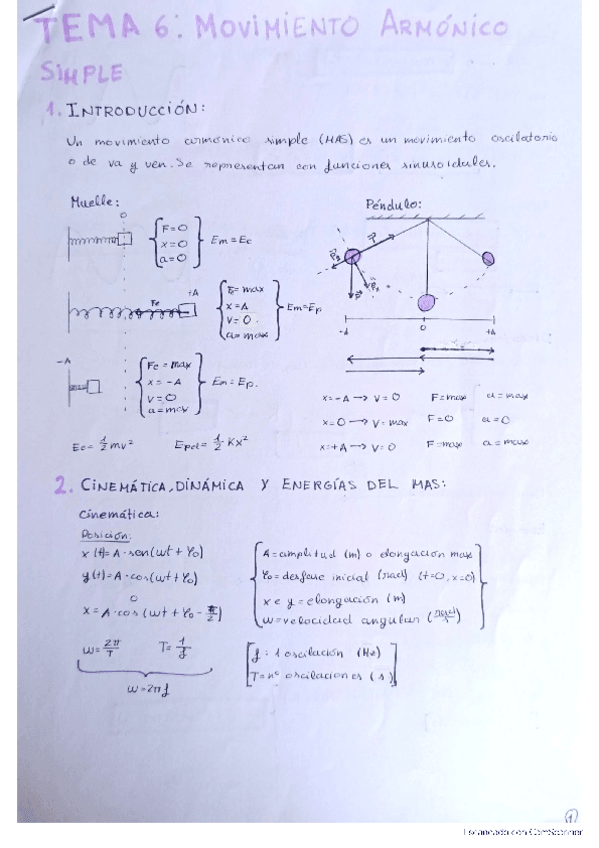 TEMA 6: MOVIMIENTO ARMÓNICO
SIMPLE
1. INTRODUCCIÓN:
Un movimiento armónico simple (MAS) es un movimiento oscilatorio
o de va y ven. Se representan con funciones sinusoidales.
Muelle:
0
F=0
x=0
a=0
Em = Ec
Fe
+A
Fe= max
x=A
V=0.
a=max
Em=Ep
-A
Fe=max
x=-A
V=0
a=max
Em=Ep.
Ec= 1/2 mv² Epel= 1/2 Kx²
Péndulo:
-A 0 +A
x=-A → V=0 F=max a=max
x=0 → V=max F=0 a=0
x=+A → V=0 F=max a=max
2. CINEMÁTICA, DINÁMICA Y ENERGÍAS DEL MAS:
Cinemática:
Posición:
x(t)=A·sen(ωt+φ0)
y(t)=A·cos(ωt+φ0)
o
x=A·cos(ωt+φ0-π/2)
A=amplitud (m) o elongación max
φ0=desfase inicial (rad) (t=0, x=0)
x e y=elongación (m)
ω=velocidad angular (rad/s)
ω=2π/T T=1/f
ω=2πf
f: 1 oscilación (Hz)
T=nº oscilaciones (s)
1
Escaneado con CamScanner